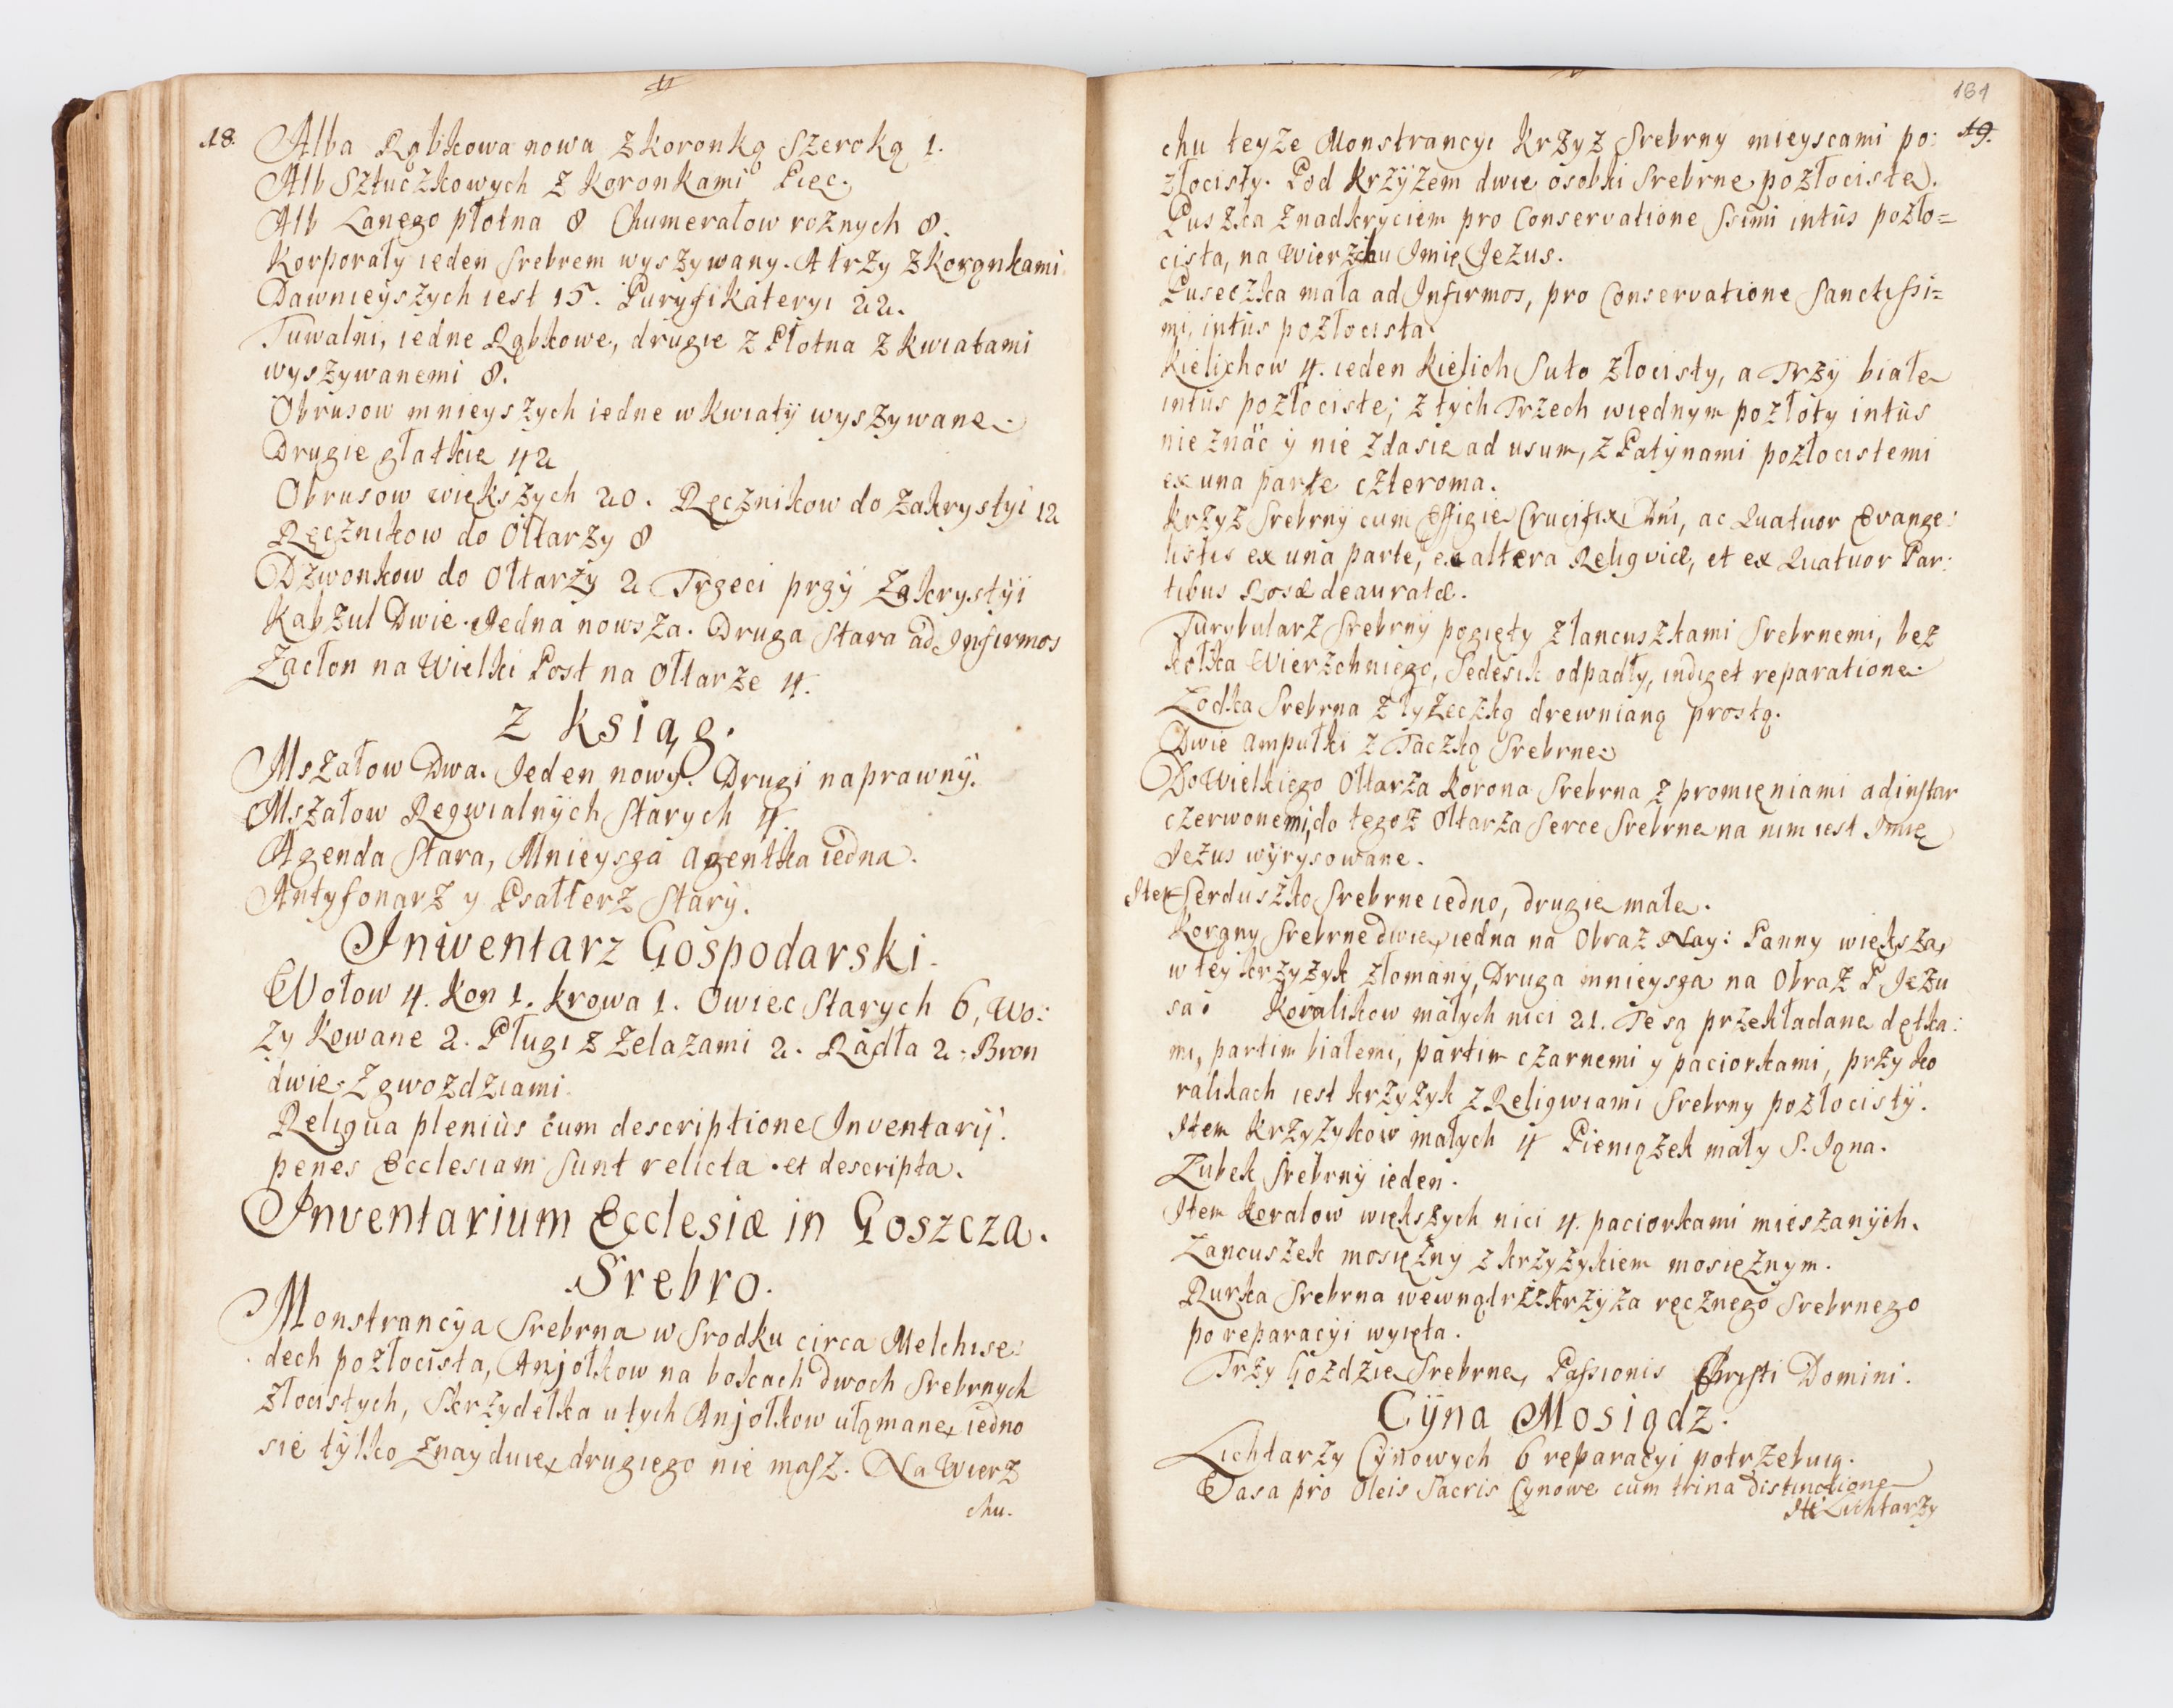 18.
Alba Rąbkowa nowa z koronką szeroką 1.
Alb Sztuczkowych z koronkami Pięc.
Alb Lanego płotna 8 Chumerałow roznych 8.
Korporały ieden Srebrem wyszywany. A trzy z koronkami
Dawnieyszych iest 15. Puryfikateryi 22.
Tuwalni, iedne Rąbkowe, drugie z Płotna z kwiatami
wyszywanemi 8.
Obrusow mnieyszych iedne w kwiaty wyszywane.
Drugie głatkie 42
Obrusow większych 20. Ręcznikow do Zakrystyi 12
Ręcznikow do Ołtarzy 8
Dzwonkow do Ołtarzy 2 Trzeci przy Zakrystyi
Kabzul Dwie. Jedna nowsza. Druga Stara ad Infirmos
Zacłon na Wielki Post na Ołtarze 4.
z ksiąg.
Mszałow Dwa. Jeden nowy. Drugi naprawny.
Mszałow Reqwialnych Starych 4.
Agenda Stara, Mnieysza agentka iedna.
Antyfonarz y Psałterz Stary.
Inwentarz Gospodarski.
Wołow 4. Kon 1. Krowa 1. Owiec Starych 6, Wo:
zy Kowane 2. Pługi z Zelazami 2. Radła 2. Bron
dwie z gwozdziami.
Reliqua plenius cum descriptione Inventarij.
penes Ecclesiam Sunt relicta. et descripta.
Inventarium Ecclesiæ in Goszcza.
Srebro.
Monstrancya Srebrna w Srodku circa Melchise:
dech pozłocista, Anjołkow na bokach dwoch Srebrnych
złocistych, Skrzydełka u tych Anjołkow ułąmane, iedno
sie tylko znayduie, drugiego nie masz. Na Wierz
chu.
181
19.
chu teyze Monstrancyi Krzyz Srebrny mieyscami po:
złocisty. Pod krzyzem dwie osobki Srebrne pozłociste.
Puszka z nadkryciem pro Conservatione Ssimi intus pozło=
cista, na Wierzchu Imię Jezus.
Puseczka mała ad Infirmos, pro Conservatione Sanctissi=
mi, intus pozłocista.
Kielichow 4. ieden Kielich Suto złocisty, a Trzy białe
intus pozłociste; z tych Trzech w iednym pozłoty intus
nie znac y nie zda sie ad usum, z Patynami pozłocistemi
ex una parte czteroma.
Krzyz Srebrny cum Effigie Crucifixi Dni, ac Quatuor Evange:
listis ex una parte, ex altera Reliqviæ, et ex Quatuor Par:
tibus Rosæ deauratæ.
Turybularz Srebrny pogięty z łancuszkami Srebrnemi, bez
kołka Wierzchniego, Sedesik odpadły, indiget reparatione.
Łodka Srebrna z łyzeczką drewnianą prostą.
Dwie ampułki z Taczką Srebrne.
Do Wielkiego Ołtarza Korona Srebrna z promięniami ad instar
czerwonemi, do tegoz Ołtarza Serce Srebrne na nim iest Imię
Jezus wyrysowane.
Item Serduszko Srebrne iedno, drugie małe.
Korony Srebrne dwie, iedna na Obraz Nay: Panny większa,
w tey krzyzyk złomany, Druga mnieysza na Obraz P. Jezu
sa. Koralikow małych nici 21. Te są przekładane dętka:
mi, partim białemi, partim czarnemi y paciorkami, przy ko
ralikach iest krzyzyk z Reliqwiami Srebrny pozłocisty.
Item Krzyzykow małych 4 Pieniązek mały S. Igna.
Zubek Srebrny ieden.
Item Koralow większych nici 4. paciorkami mieszanych.
Łancuszek mosięzny z krzyzykiem mosięznym.
Rurka Srebrna wewnątrz krzyza ręcznego Srebrnego
po reparacyi wyięta.
Trzy Gozdzie Srebrne, Passionis Christi Domini.
Cyna Mosiądz.
Lichtarzy Cynowych 6 reparacyi potrzebuią.
Vasa pro Oleis Sacris Cynowe cum trina distinctione
It: Lichtarzy